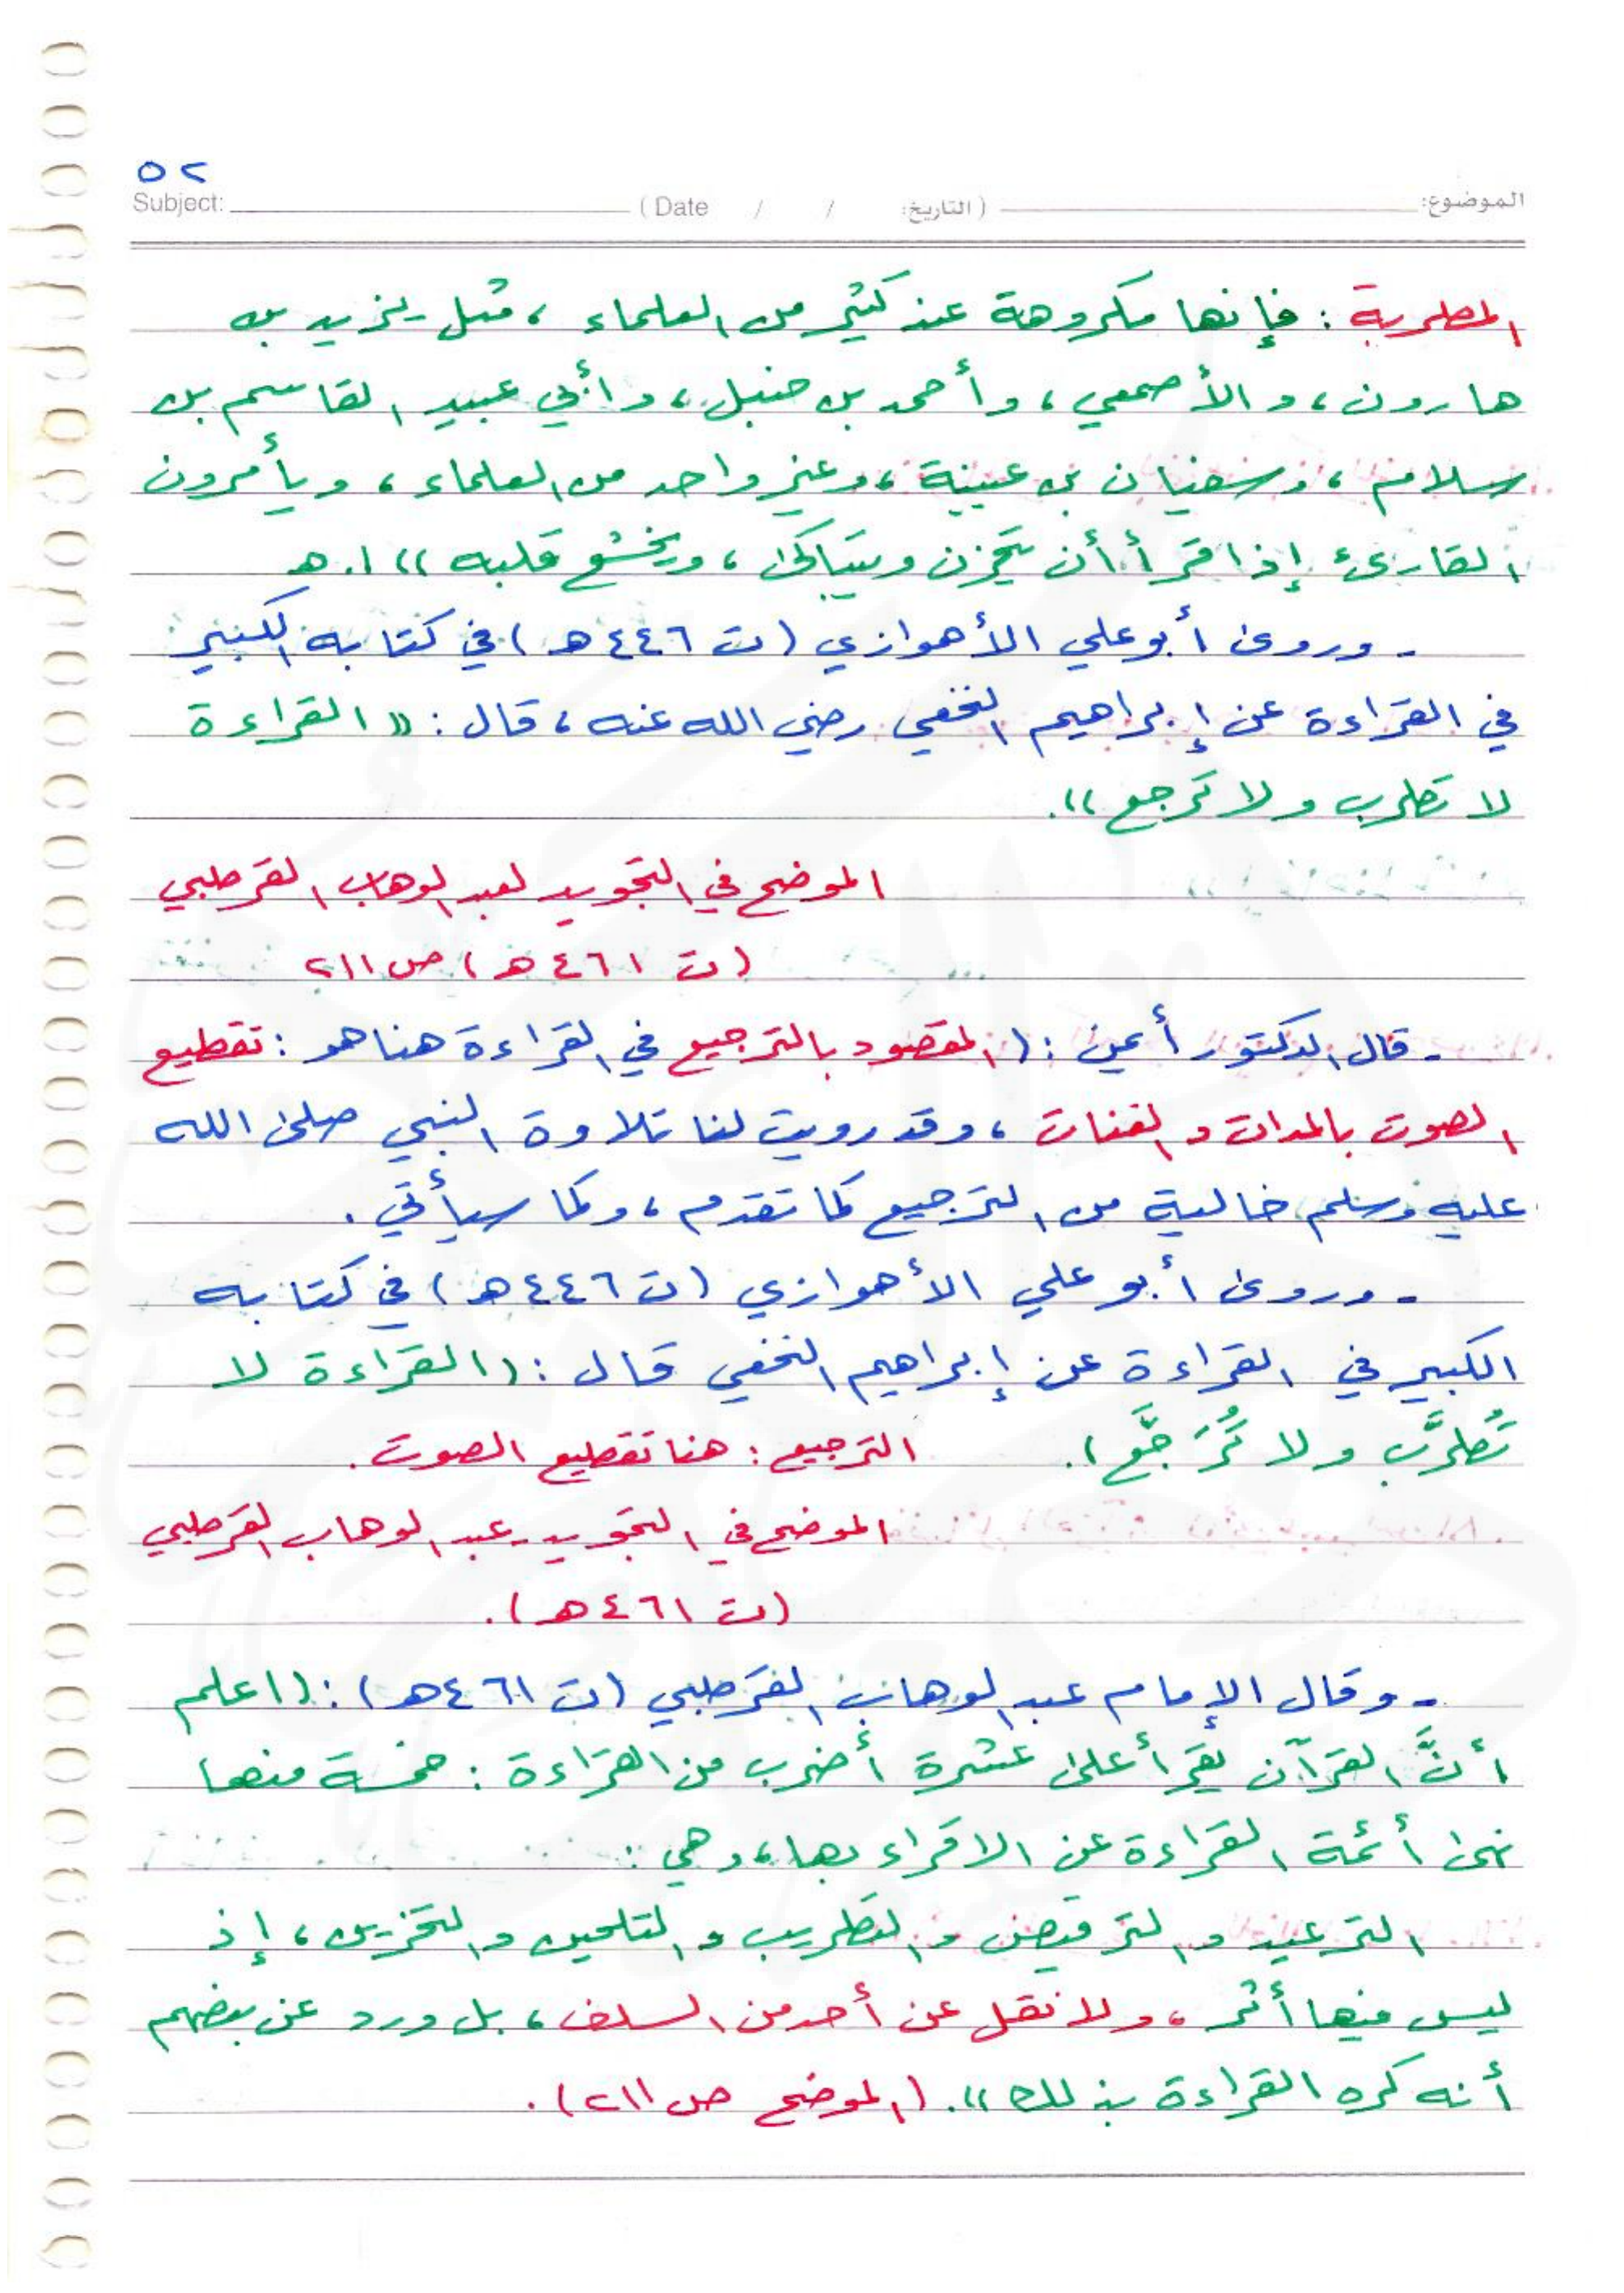 ٥٢
الموضوع: (التاريخ: / / Date) Subject:
المطربة : فإنها مكروهة عند كثير من العلماء ، مثل يزيد بن
هارون ، والأصمعي ، وأحمد بن حنبل ، وأبي عبيد القاسم بن
سلام ، وسفيان بن عيينة ، وغير واحد من العلماء ، ويأمرون
القارئ إذا قرأ أن يتحزن ويتباكى ، ويخشع قلبه )) ا.هـ
- وروى أبو علي الأهوازي (ت ٤٤٦ هـ) في كتابه الكبير
في القراءة عن إبراهيم النخعي رضي الله عنه ، قال : (( القراءة
لا تطرب ولا ترجع )).
الموضح في التجويد لعبد الوهاب القرطبي
(ت ٤٦١ هـ) ص ٢١١
- قال الدكتور أيمن : ( المقصود بالترجيع في القراءة هنا هو : تقطيع
الصوت بالمدات والغنات ، وقد رويت لنا تلاوة النبي صلى الله
عليه وسلم خالية من الترجيع كما تقدم ، وكما سيأتي .
- وروى أبو علي الأهوازي (ت ٤٤٦ هـ) في كتابه
الكبير في القراءة عن إبراهيم النخعي قال : (القراءة لا
تُطرَّب ولا تُرَجَّع ). الترجيع : هنا تقطيع الصوت .
الموضح في التجويد - عبد الوهاب القرطبي
(ت ٤٦١ هـ).
- وقال الإمام عبد الوهاب القرطبي (ت ٤٦١ هـ) : (اعلم
أنَّ القرآن يُقرأ على عشرة أضرب من القراءة : خمسة منها
نهى أئمة القراءة عن الاقراء بها ، وهي :
الترعيد والترقيص والتطريب والتلحين والتحزين ، إذ
ليس فيها أثر ، ولا نقل عن أحد من السلف ، بل ورد عن بعضهم
أنه كره القراءة بذلك )). (الموضح ص ٢١١).